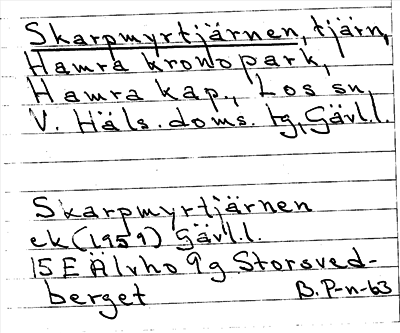 Skarpmyrtjärnen, tjärn,
Hamra kronopark,
Hamra kap., Los sn,
V. Häls. doms. tg, Gävl.l.
Skarpmyrtjärnen
ek (1959) Gävl.l.
15 E Älvho 9 g Storsved-
berget B. P-n-63